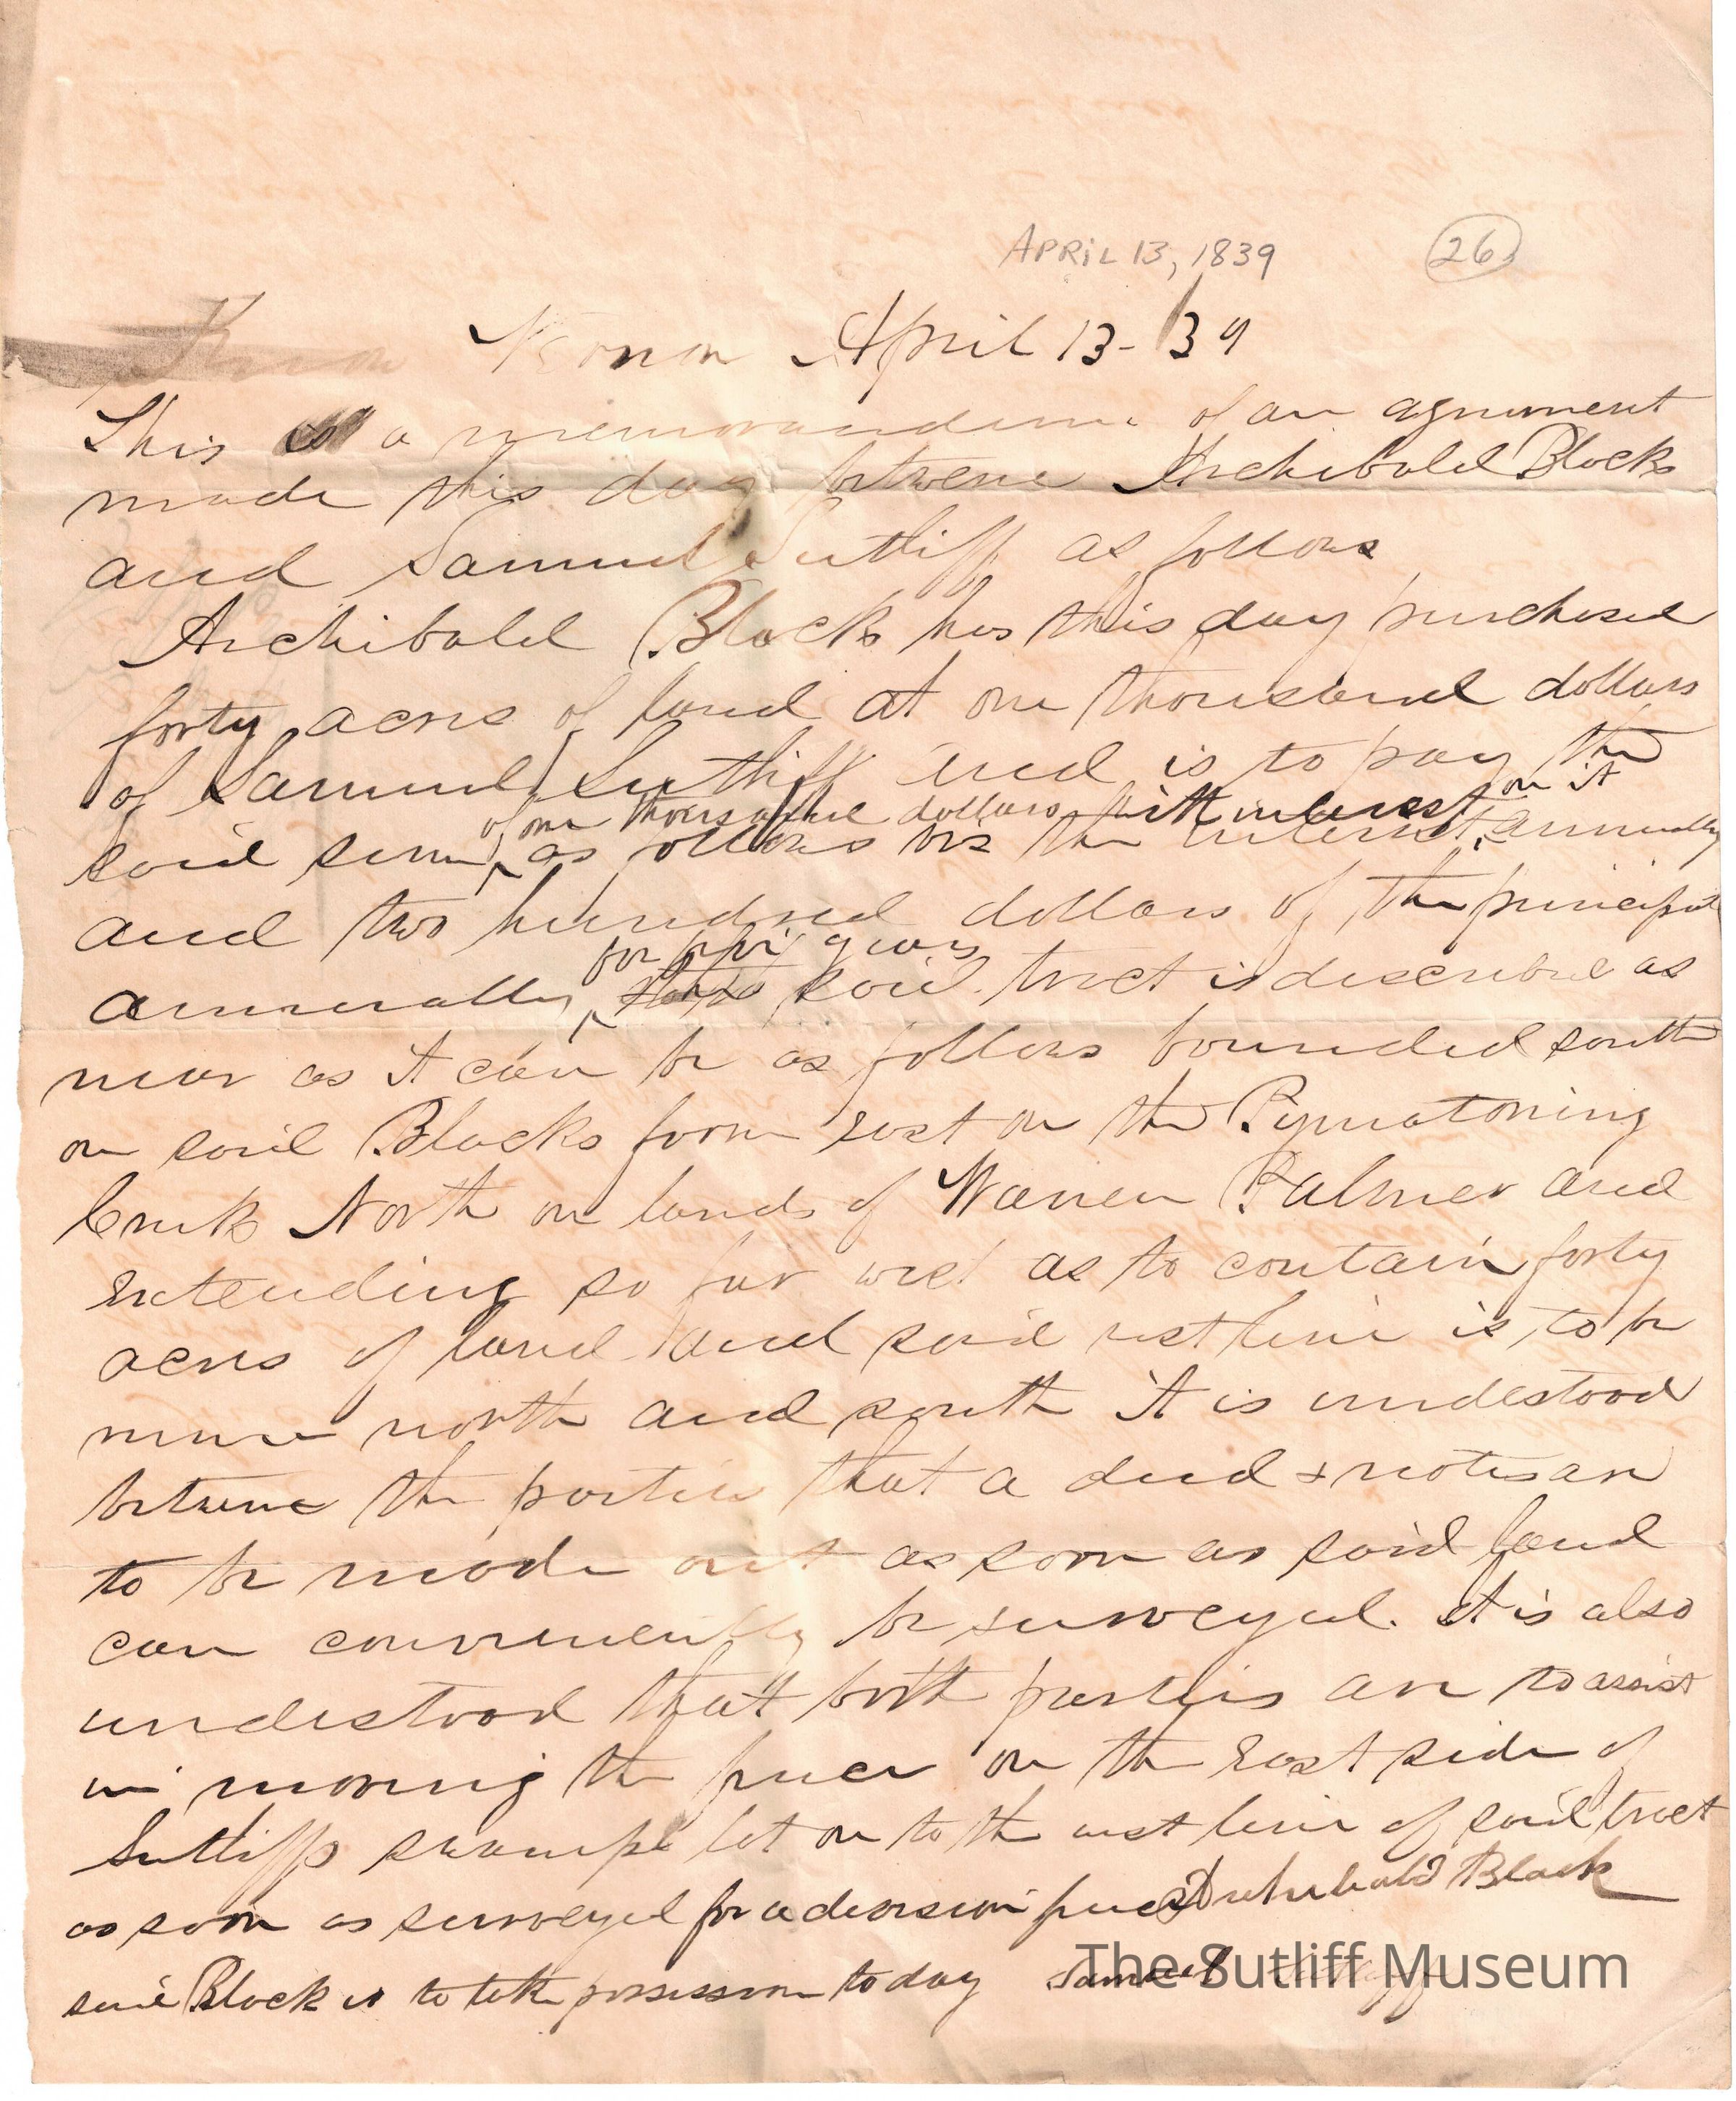 APRIL 13, 1839 26
Vernon April 13 - 39
This is a memorandum of an agreement
made this day betwene Archibald Black
and Samuel Sutliff as follows
Archibald Black has this day purchased
forty acres of land at one thousand dollars
of Samuel Sutliff and is to pay the
of one thousand dollars with interest on it
said sum as follows viz the interest annually
and two hundred dollars of the principal
for five years
annually said tract is described as
near as it can be as follows bounded south
on said Blacks farm east on the Pymatoning
Creek North on lands of Warren Palmer and
Extending so far west as to contain forty
acres of land and said west line is to be
runn north and south it is undestood
betwene the parties that a deed & notes are
to be made out as soon as said land
can conveniently be surveyed. it is also
undestood that both parties are to assist
in moving the fence on the East side of
Sutliffs swamp lot on to the west line of said tract
as soon as surveyed for a devision fence Archibald Black
said Black is to take possession to day Samuel Sutliff
The Sutliff Museum